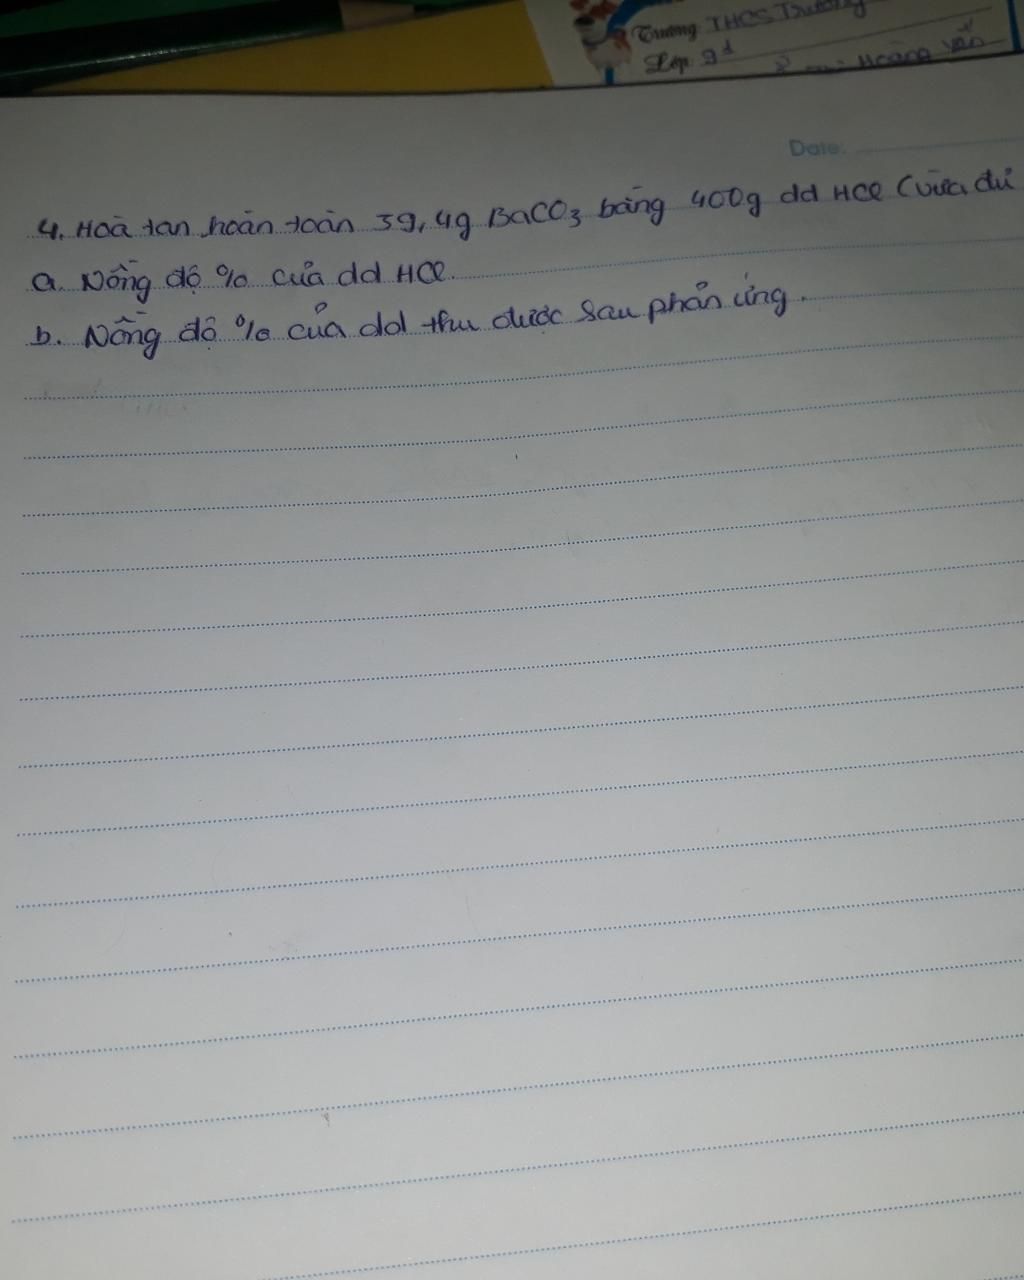 Trường THCS Trường
Lớp: 9d
Hoàng Văn
Date:
4. Hoà tan hoàn toàn 39,4g BaCO3 bằng 400g dd HCl (vừa đủ
a. Nồng độ % của dd HCl.
b. Nồng độ % của dd thu được sau phản ứng.